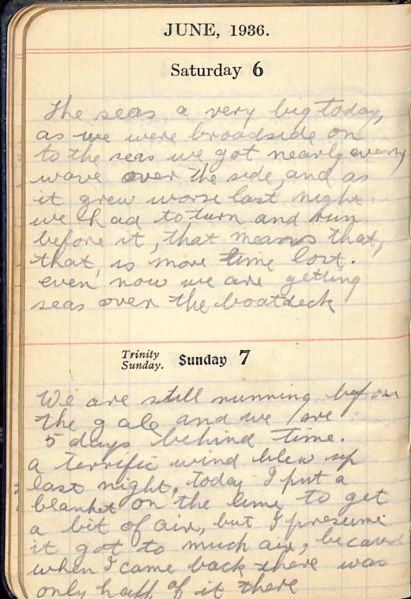 JUNE, 1936.
Saturday 6
The seas a very big today,
as we were broadside on
to the seas we got nearly every
wave over the side, and as
it grew worse last night
we had to turn and run
before it, that means that,
that, is more time lost.
even now we are getting
seas over the boatdeck
Trinity
Sunday. Sunday 7
We are still running before
the gale and we are
5 days behind time.
a terrific wind blew up
last night, today I put a
blanket on the line to get
a bit of air, but I presume
it got to much air, because
when I came back there was
only half of it there